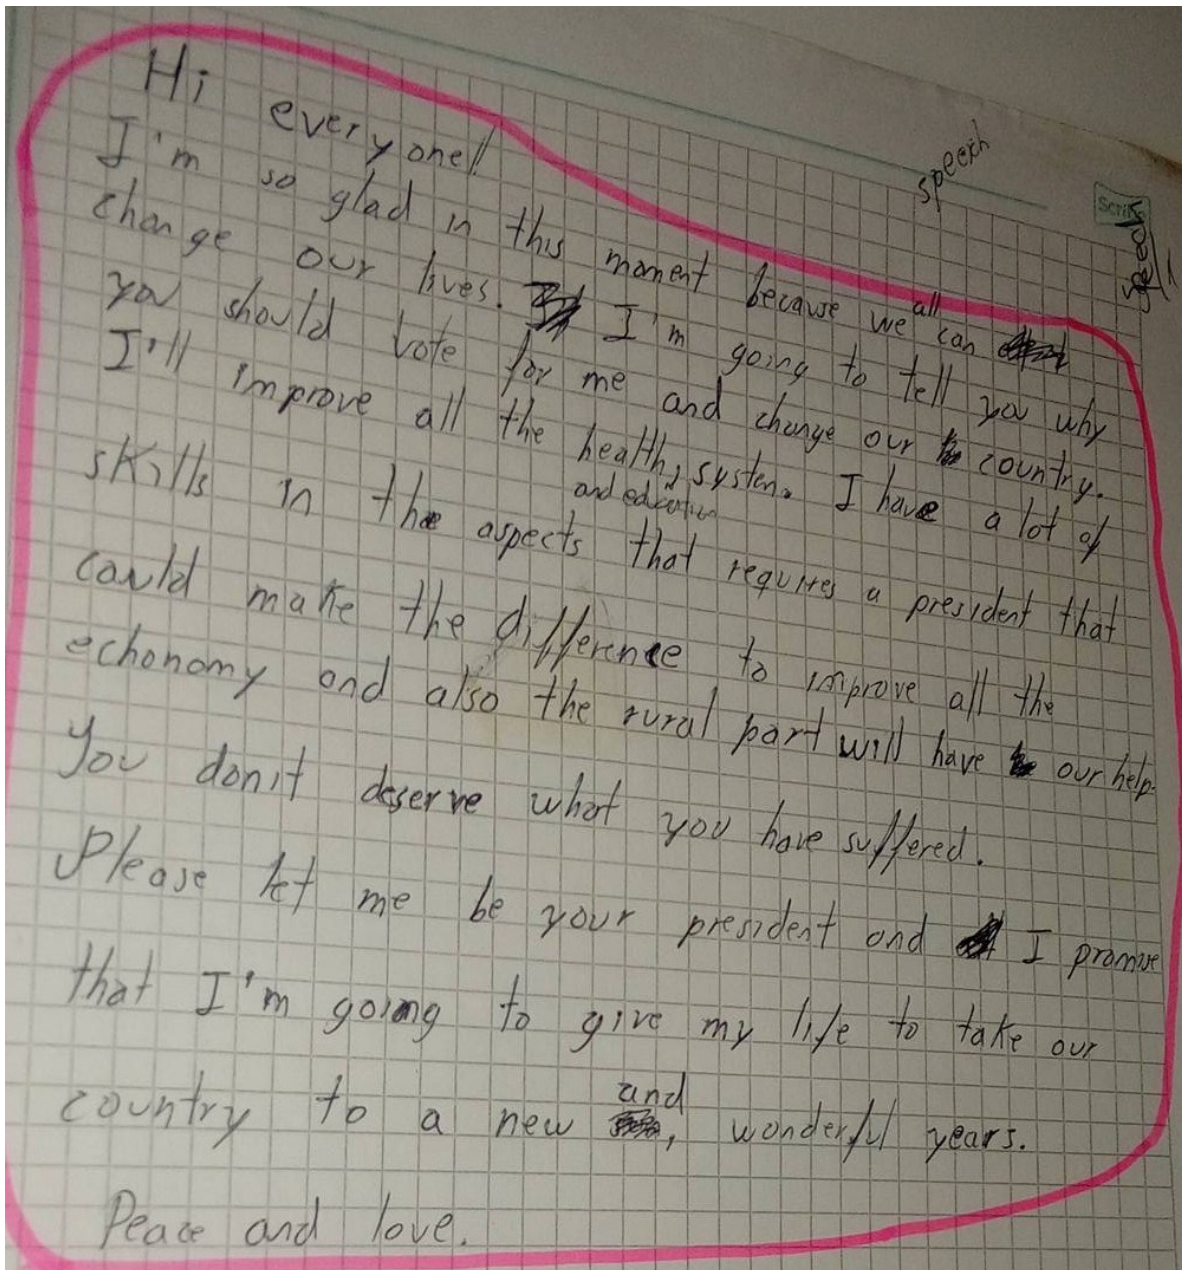 speech
Scribe
speech
Hi everyone!!
I'm so glad in this moment because we all can
change our lives. I'm going to tell you why
you should vote for me and change our country.
I'll improve all the health, and education system. I have a lot of
skills in the aspects that requires a president that
could make the difference to improve all the
echonomy and also the rural part will have our help.
You don't deserve what you have suffered.
Please let me be your president and I promise
that I'm going to give my life to take our
country to a new and, wonderful years.
Peace and love.